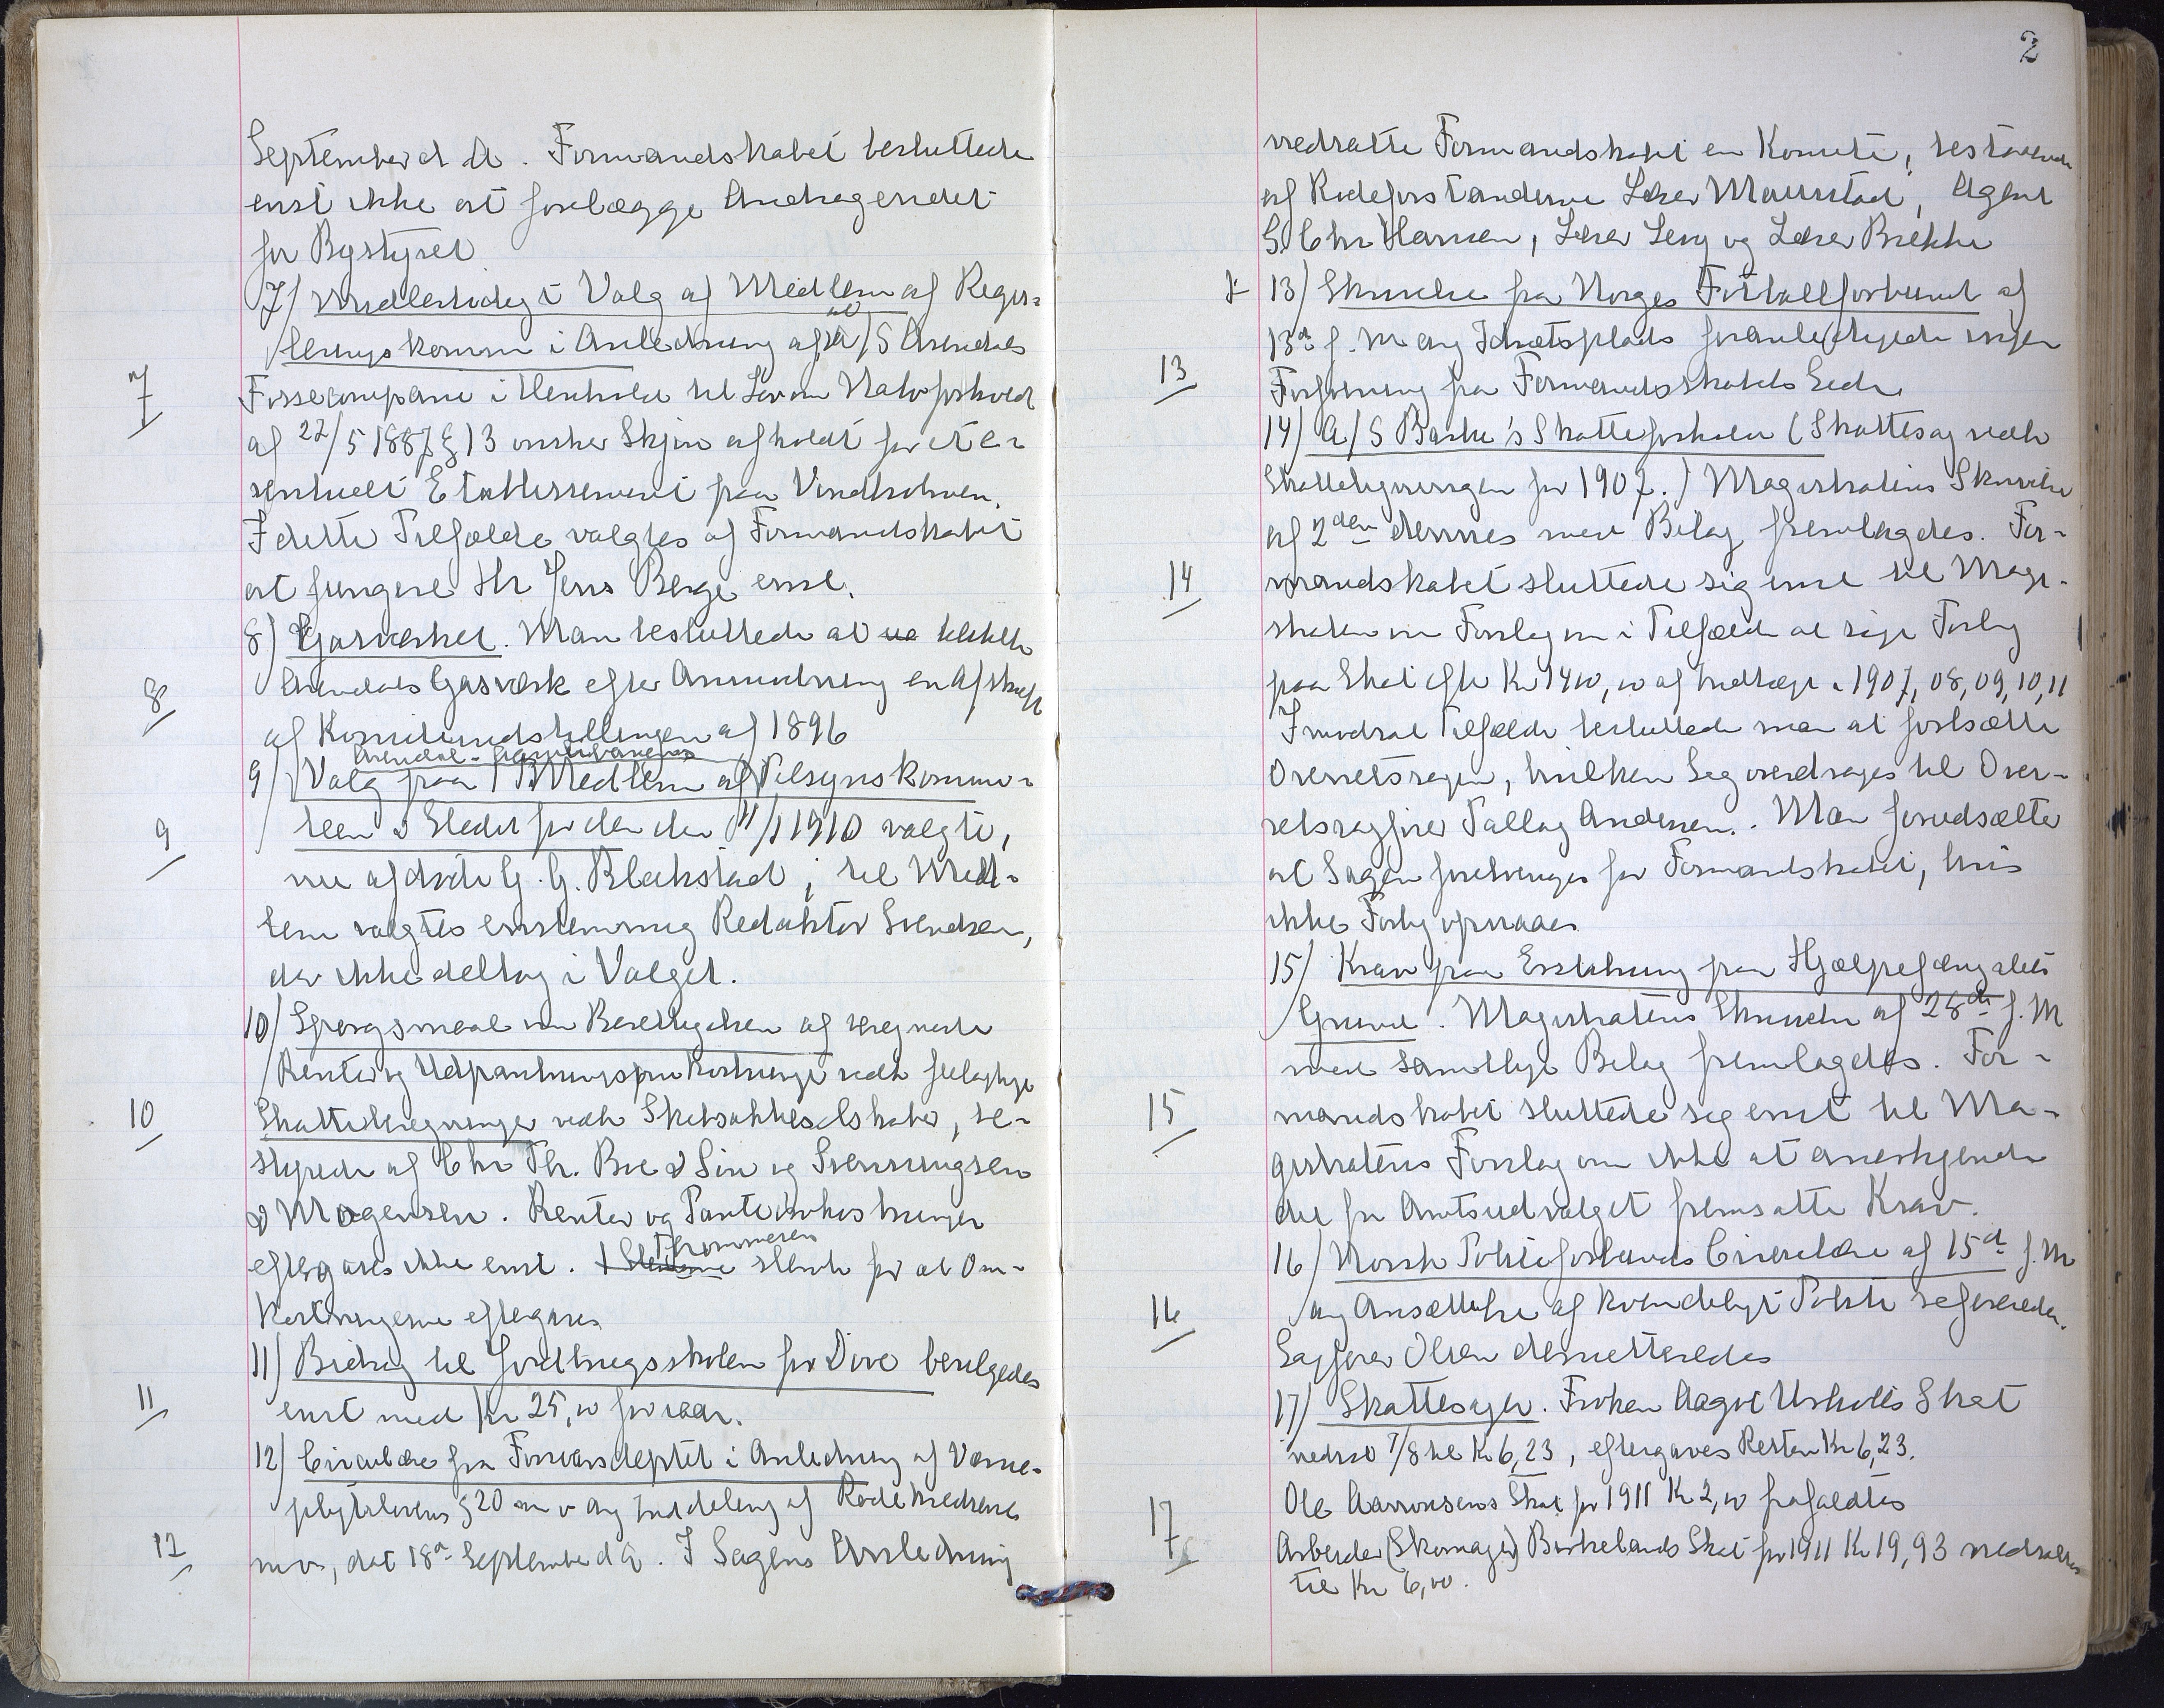 September d A. Formandskabet besluttede
enst ikke at forelægge Andragendet
for Bystyret
7) Midlertidigt Valg af Medlem af Regu-
leringskomm i Anledning af at A/S Arendals
7
Fossecompani i Henhold til Lov om Vatv forhold
af 22/5 1887 § 13 ønsker Skjøn afholdt for et e-
ventuelt Etablissement paa Vindholmen.
I dette Tilfælde valgtes af Formandskabet
at fungere Hr Jens Berge enst.
8) Gasværket. Man besluttede at tilstille
Arendals Gasværk efter Anmodning en Afskrift
8
af Komiteindstillingen af 1896
Arendal-
9) Valg paa 1 Medlem af Tilsynskommi-
teen i Stedet for den den 11/1 1910 valgte,
9
nu afdøde G. G. Blakstad; til Med-
lem valgtes enstemmig Redaktør Svendsen,
der ikke deltog i Valget.
10) Spørgsmaal om Berettigelsen af beregnede
Renter og Udpantningsomkostninger vedk feilagtige
10
Skatteberegninger vedk Skibsaktieselskaber, be-
styrede af Chr Th. Boe & Søn og Svenningsen
& Mogensen. Renter og Panteomkostninger
eftergaves ikke enst. Thommesen
stemte for at Om-
kostningerne eftergaves
11) Bidrag til Jordbrugsskolen for Døve bevilgedes
11
enst med Kr 25,00 for iaar.
12) Circulære fra Forsvarsdeptet i Anledning af Værne-
pligtslovens § 20 m v ang Inddeling af Rodekredsene
12
m v, dat 18de September d A. I Sagens Anledning
2
nedsatte Formandskabet en Komite, bestaaende
af Rodeforstanderne Lærer Maurstad, Agent
S Chr Hansen, Lærer Levy og Lærer Brekke
13) Skrivelse fra Norges Fotballforbund af
13de f. M ang Idrætsplads foranledigede ingen
13
Forføining fra Formandsskabets Side.
14) A/S Barbu's Skatteforholde (Skattesag vedk
Skatteligningen for 1907.) Magistratens Skrivelse
af 2den dennes med Bilag fremlagdes. For-
14
mandskabet sluttede sig enst til Magi-
stratens Forslag om i Tilfælde at søge Forlig
paa Skat efter Kr 1400,00 af Indtægt i 1907, 08, 09, 10, 11
I modsat Tilfælde besluttede man at fortsætte
Overretssagen, hvilken Sag overdrages til Over-
retssagfører Tallag Andersen. Man forudsætter
at Sagen forebringes for Formandskabet, hvis
ikke Forlig opnaaes
15) Krav paa Erstatning fra Hjælpefængslets
Grund. Magistratens Skrivelse af 28de f. M
med samtlige Bilag fremlagdes. For-
15
mandskabet sluttede sig enst til Ma-
gistratens Forslag om ikke at anerkjende
det fra Amtsudvalget fremsatte Krav.
16) Norsk Politiforbunds Circulære af 15de f. M
16
ang Ansættelse af kvindeligt Politi refereredes.
Sagfører Olsen demitteredes
17) Skattesager. Frøken Aagot Skat
nedsat 7/8 til Kr 6,23, eftergaves Resten Kr 6,23.
Ole Aanonsens Skat for 1911 Kr 2,00 frafaldtes
17
Arbeider (Skomager) Birkelands Skat for 1911 Kr 19,93 nedsattes
til Kr 6,00.